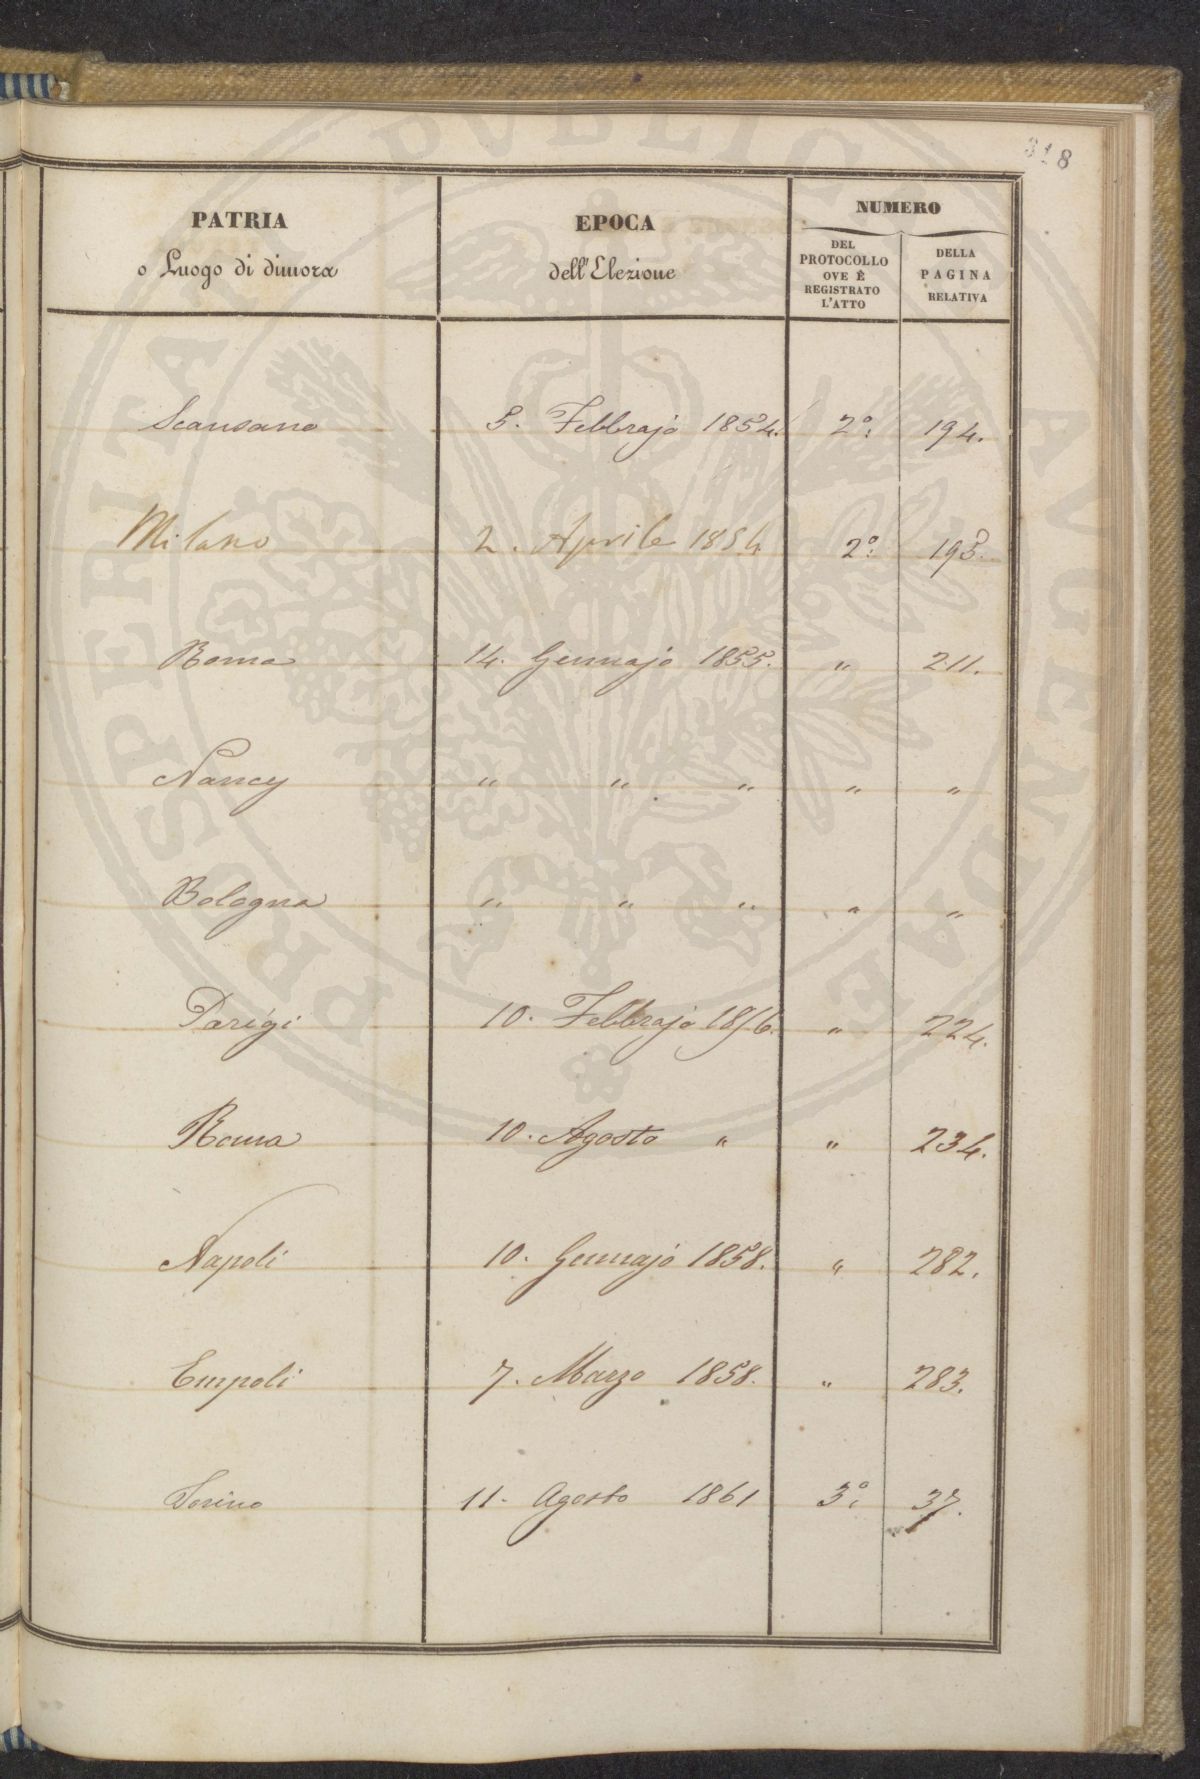 318
PATRIA
o Luogo di dimora
EPOCA
dell'Elezione
NUMERO
DEL
PROTOCOLLO
OVE È
REGISTRATO
L'ATTO
DELLA
PAGINA
RELATIVA
Scansano 5. Febbrajo 1854. 2°: 194.
Milano 2. Aprile 1854 2°: 195.
Roma 14. Gennajo 1855. " 211.
Nancy " " " " "
Bologna " " " " "
Parigi 10. Febbrajo 1856. " 224.
Roma 10. Agosto " " 234.
Napoli 10. Gennajo 1858. " 282.
Empoli 7. Marzo 1858. " 283.
Torino 11. Agosto 1861 3°: 37.
PROSPERITATI PVBLICAE AVGENDAE